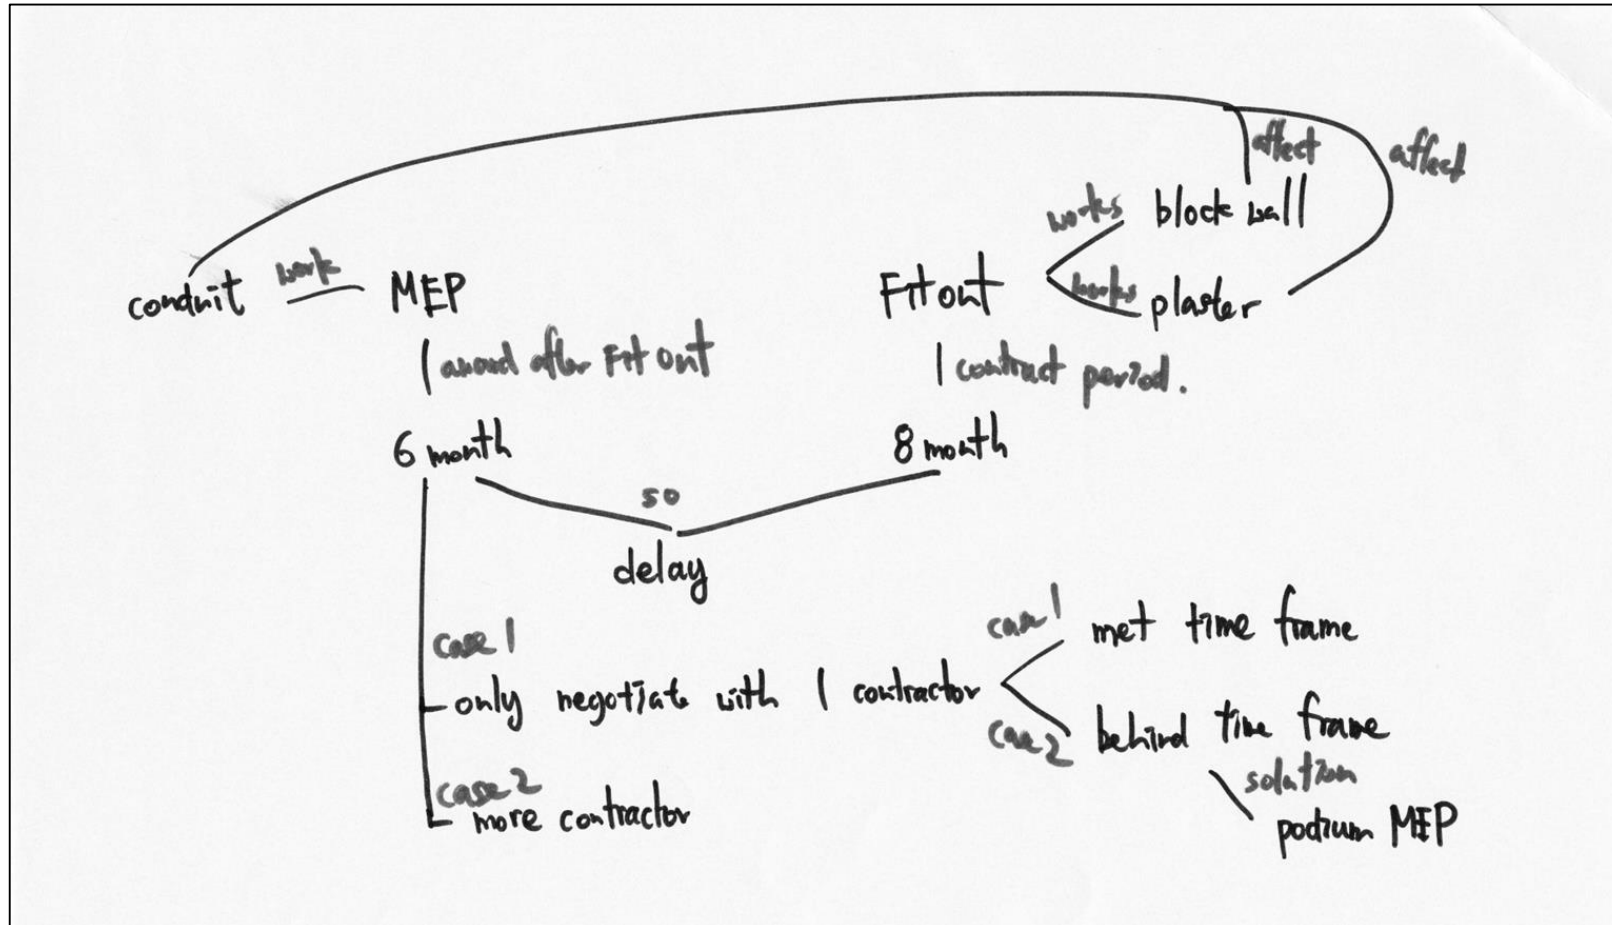 affect
affect
works block wall
conduit work MEP
Fit out works plaster
award after Fit out
contract period.
6 month
8 month
so
delay
case 1
only negotiate with 1 contractor
case 1 met time frame
case 2 behind time frame
solution
podium MEP
case 2
more contractor